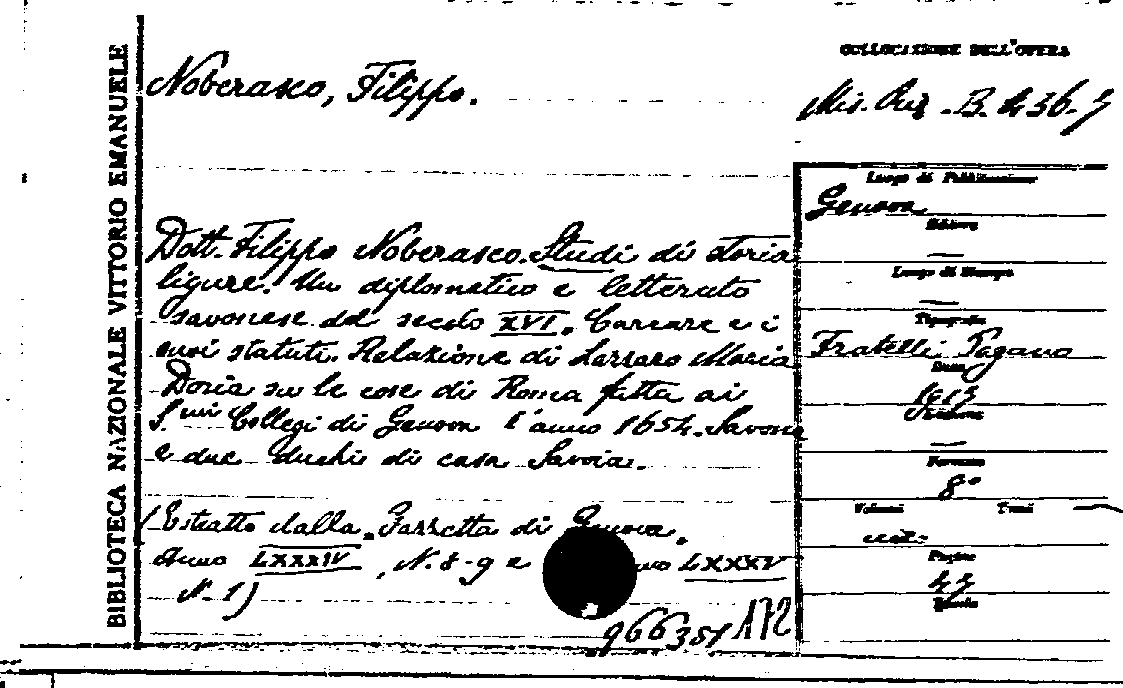 BIBLIOTECA NAZIONALE VITTORIO EMANUELE
Noberasco, Filippo.
COLLOCAZIONE DELL'OPERA
Mis. B. 436.
Dott. Filippo Noberasco. Studi di storia
ligure. Un diplomatico e letterato
savonese del secolo XVI. Carcare e i
suoi statuti. Relazione di Lazzaro Maria
Doria su le cose di Roma fatta ai
S.mi Collegi di Genova l'anno 1654. Savona
e due duchi di casa Savoia.
(Estratto dalla "Gazzetta di Genova"
Anno LXXXIV, N. 8-9 e LXXXV
N. 1)
966351 172
Luogo di Pubblicazione
Genova
Editore
—
Luogo di Stampa
—
Tipografia
Fratelli Pagano
Data
Edizione
—
Formato
8°
Volumi Tomi
Pagine
Tavole